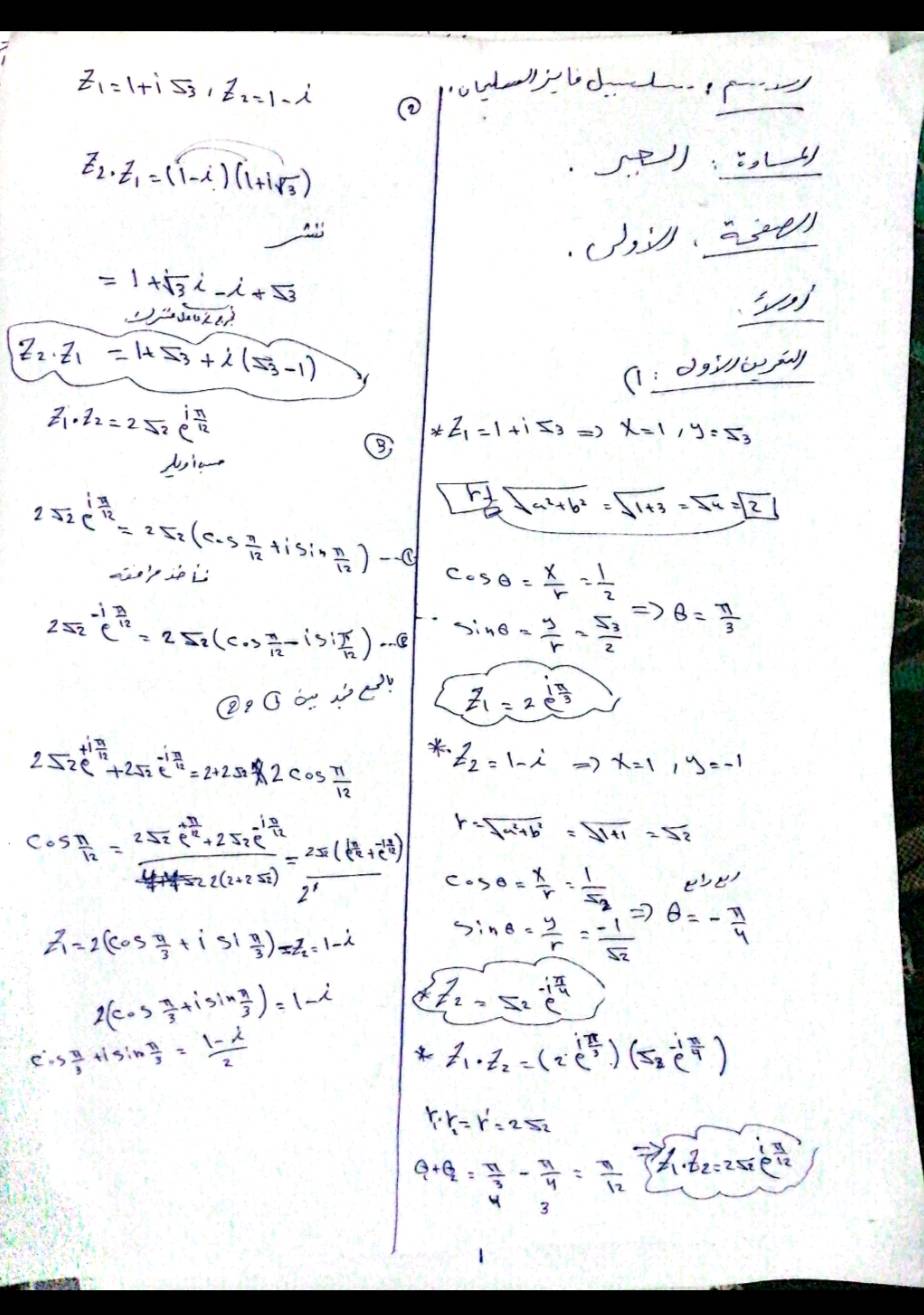 الاسم : سلسبيل فايز العمليان.
المادة : الجبر .
الصفحة . الأولى .
أولاً :
التمرين الأول : 1)
* Z₁ = 1+i√3 => x=1 , y=√3
r = √a²+b² = √1+3 = √4 = 2
cosθ = x/r = 1/2
sinθ = y/r = √3/2 => θ = π/3
Z₁ = 2e^{iπ/3}
*. Z₂ = 1-i => x=1 , y=-1
r = √a²+b² = √1+1 = √2
cosθ = x/r = 1/√2
ربع رابع
sinθ = y/r = -1/√2 => θ = -π/4
* Z₂ = √2 e^{-iπ/4}
* Z₁.Z₂ = (2e^{iπ/3}) (√2 e^{-iπ/4})
r₁.r₂ = r' = 2√2
θ₁+θ₂ = π/3 - π/4 = π/12 => Z₁.Z₂ = 2√2 e^{iπ/12}
4 3
②
Z₁ = 1+i√3 , Z₂ = 1-i
Z₂.Z₁ = (1-i)(1+i√3)
ننشر
= 1+√3 i - i + √3
Z₂.Z₁ = 1+√3 + i(√3-1)
③
Z₁.Z₂ = 2√2 e^{iπ/12}
حسب أويلر
2√2 e^{iπ/12} = 2√2 (cos π/12 + i sin π/12) --- ①
نأخذ مرافقه
2√2 e^{-iπ/12} = 2√2 (cos π/12 - i si π/12) --- ②
بالجمع نجد بين ① و ②
2√2 e^{+iπ/12} + 2√2 e^{-iπ/12} = 2+2√2 2 cos π/12
cos π/12 = 2√2 e^{+π/12} + 2√2 e^{-iπ/12} / 2(2+2√2) = 2√2 (e^{iπ/12} + e^{-iπ/12}) / 2
Z₁ = 2(cos π/3 + i si π/3) = Z₂ = 1-i
2(cos π/3 + i sin π/3) = 1-i
cos π/3 + i sin π/3 = 1-i / 2
1